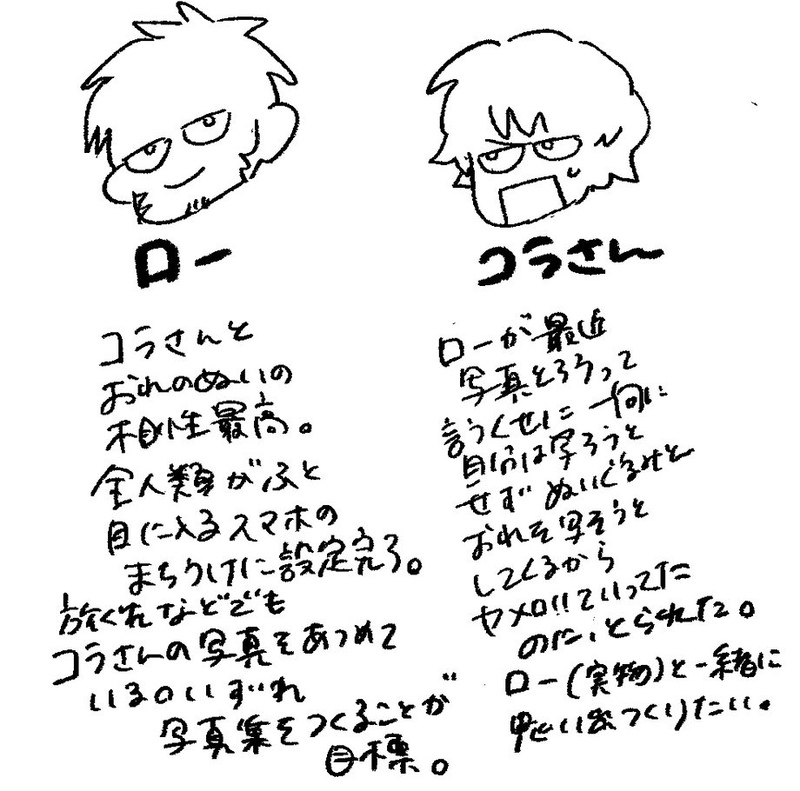 ロー
コラさんと
おれのぬいの
相性最高。
全人類がふと
目に入るスマホの
まちうけに設定完了。
旅くれなどでも
コラさんの写真をあつめて
いるのいずれ
写真集をつくることが
目標。
コラさん
ローが最近
写真とろうって
言うくせに一向に
自分は写ろうと
せずぬいぐるみと
おれを写そうと
してくるから
ヤメロ!!ていってた
のに、とられた。
ロー(実物)と一緒に
思い出つくりたい。